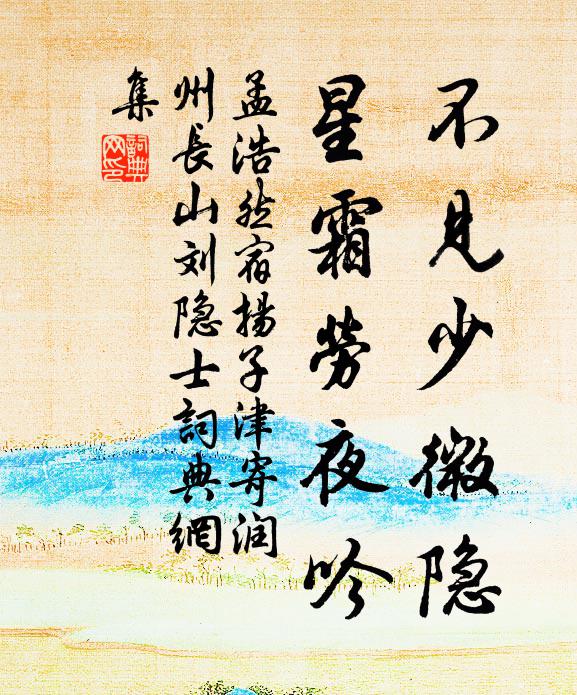 不見少微隐
星霜勞夜吟
孟浩然宿揚子津寄润
州長山刘隐士詞典網
集
詞典
网印